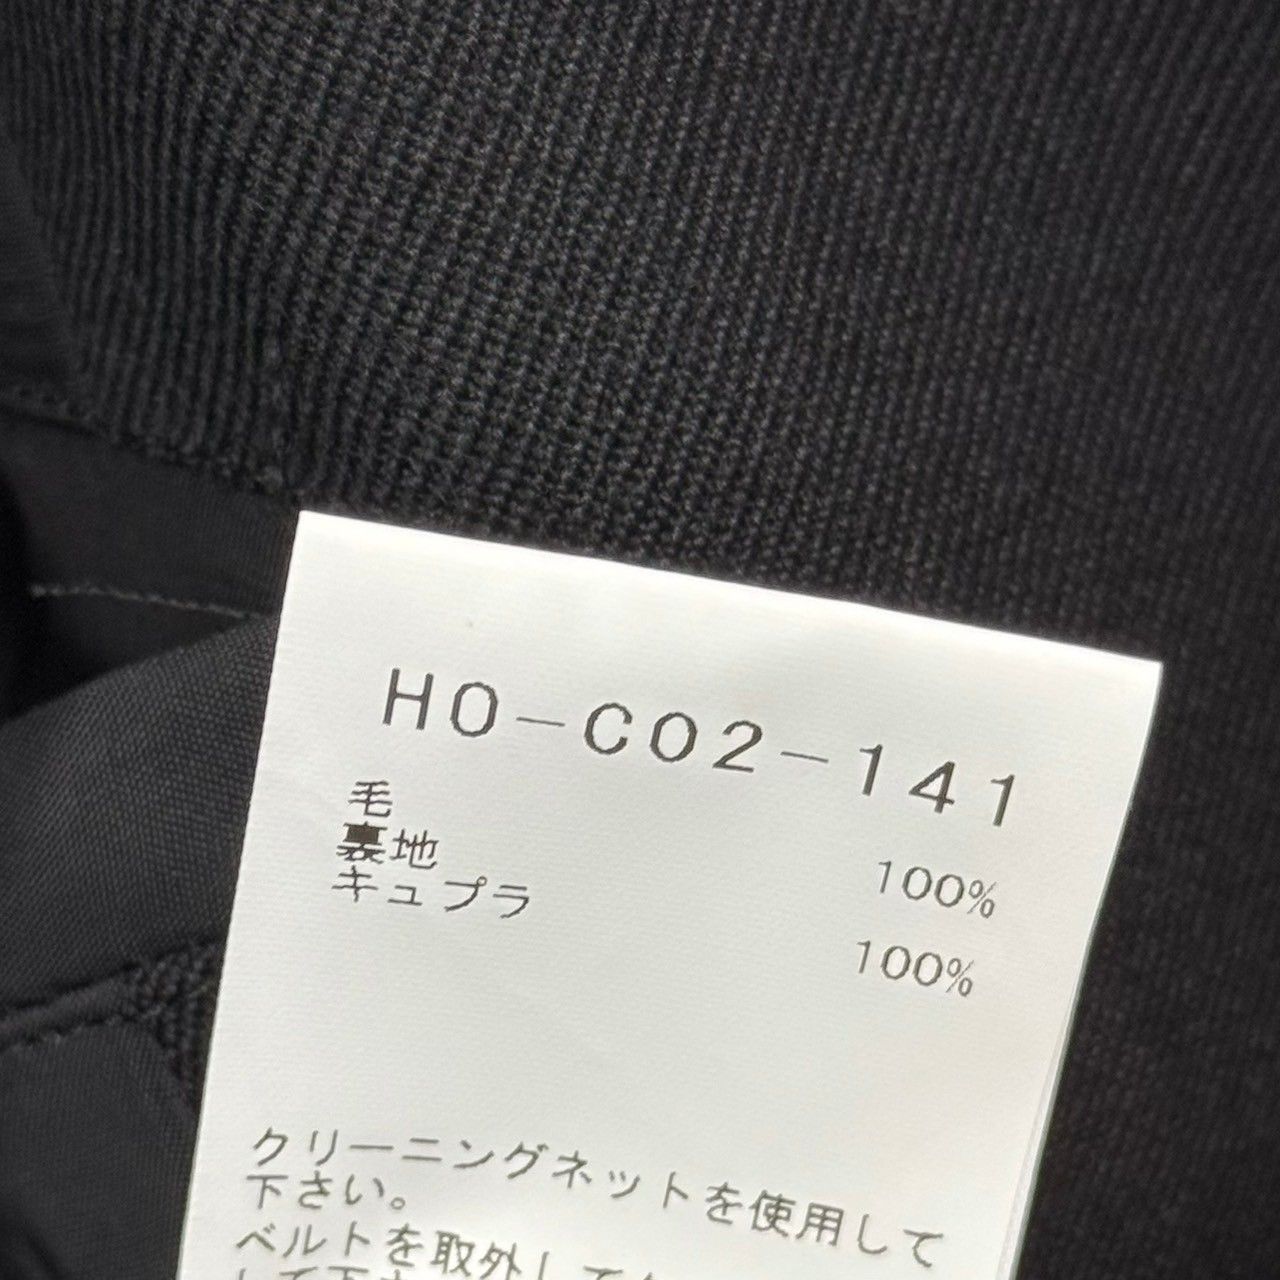 HO-C02-141
毛 100%
裏地
キュプラ 100%
クリーニングネットを使用して
下さい。
ベルトを取外して